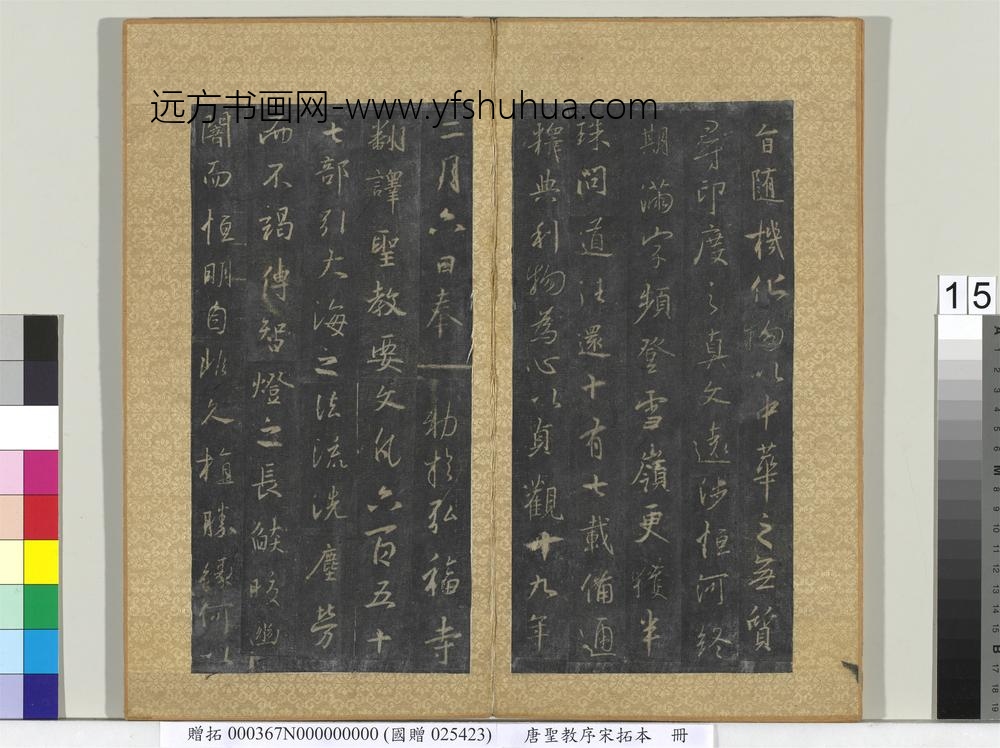 远方书画网-www.yfshuhua.com
旨随機化物以中華之無質
尋印度之真文遠涉恒河終
期滿字頻登雪嶺更獲半
珠問道往還十有七載備通
釋典利物為心以貞觀十九年
二月六日奉 勅於弘福寺
翻譯聖教要文凡六百五十
七部引大海之法流洗塵勞
而不竭傳智燈之長焰皎幽
闇而恒明自非久植勝緣何以
15
贈拓 000367N000000000 (國贈 025423) 唐聖教序宋拓本 冊